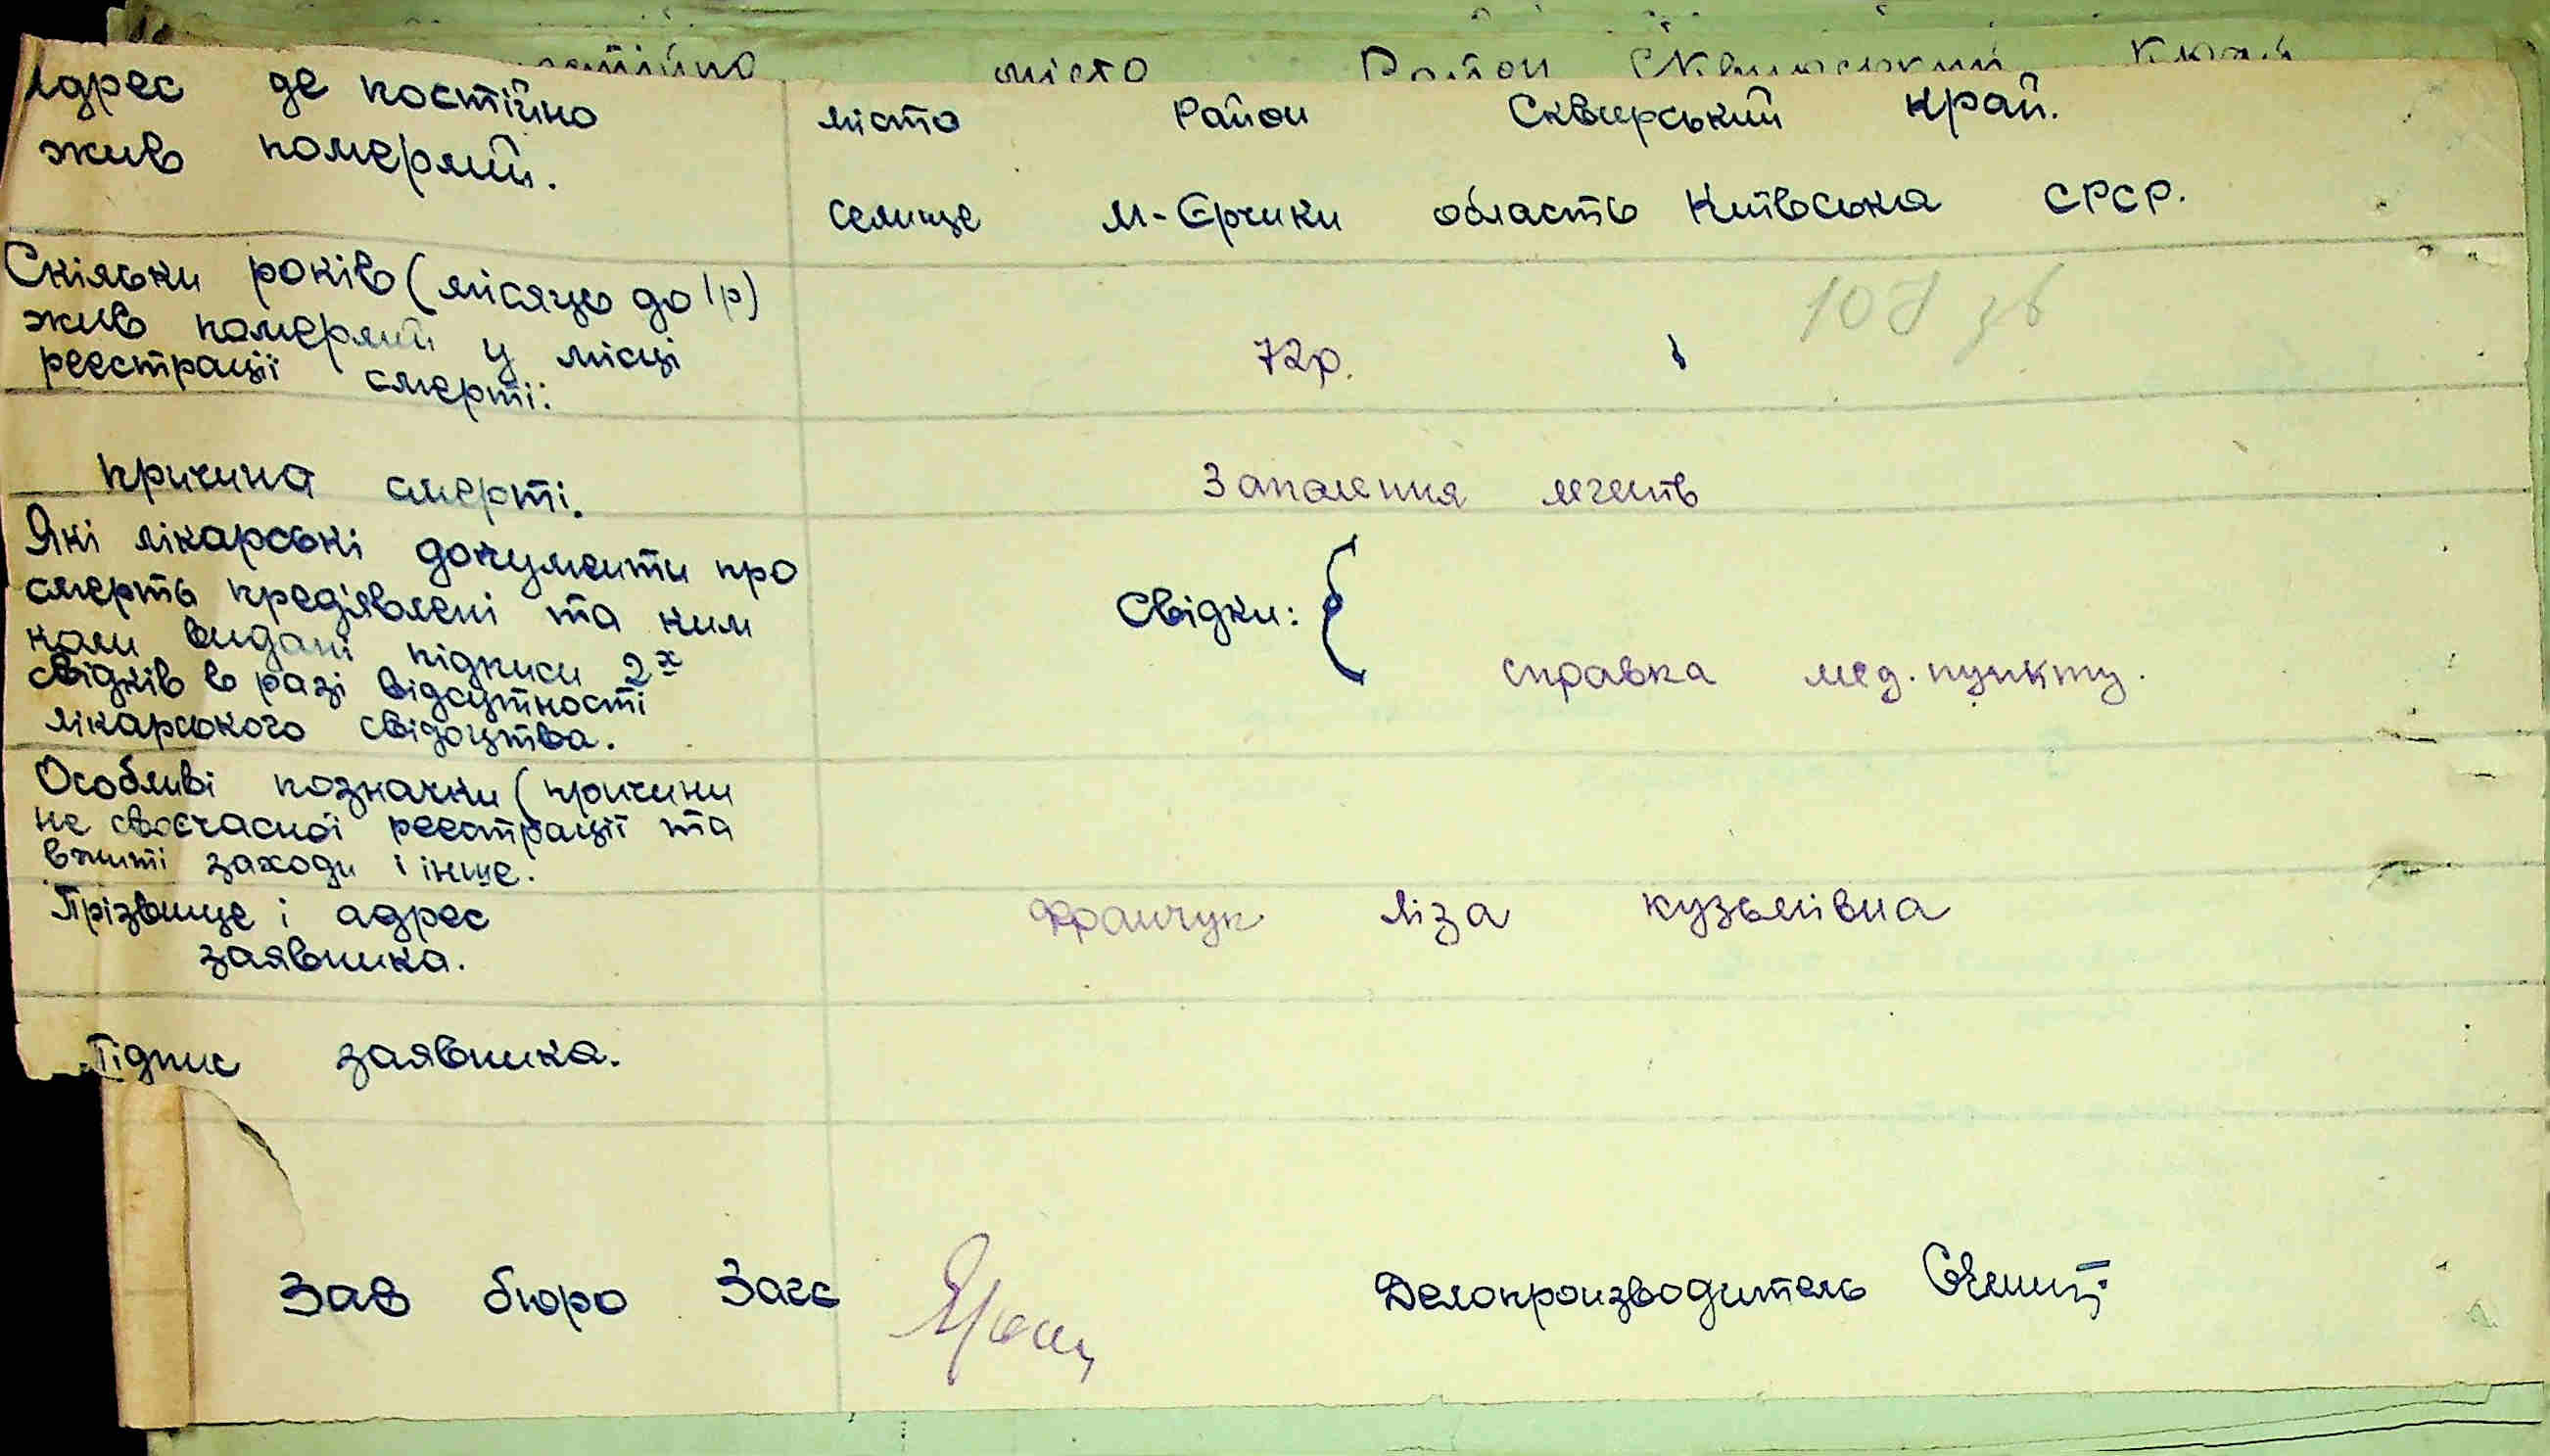 місто Район Сквирський Край
Адрес де постійно
жив померший.
місто Район Сквирський край.
селище М-Єрчики область Київська СРСР.
Скільки років (місяців до 1р)
жив померший у місці
реєстрації смерті:
72р.
Причина смерті.
Запалення легенів
Які лікарські документи про
смерть пред'явлені та ким
коли видані підписи 2х
свідків в разі відсутності
лікарського свідоцтва.
Свідки:
справка мед. пункту.
Особливі позначки (причини
не своєчасної реєстрації та
вжиті заходи і інше.
Прізвище і адрес
заявника.
Франчук Ліза Кузьмівна
Підпис заявника.
Зав бюро Загс
Делопроизводитель